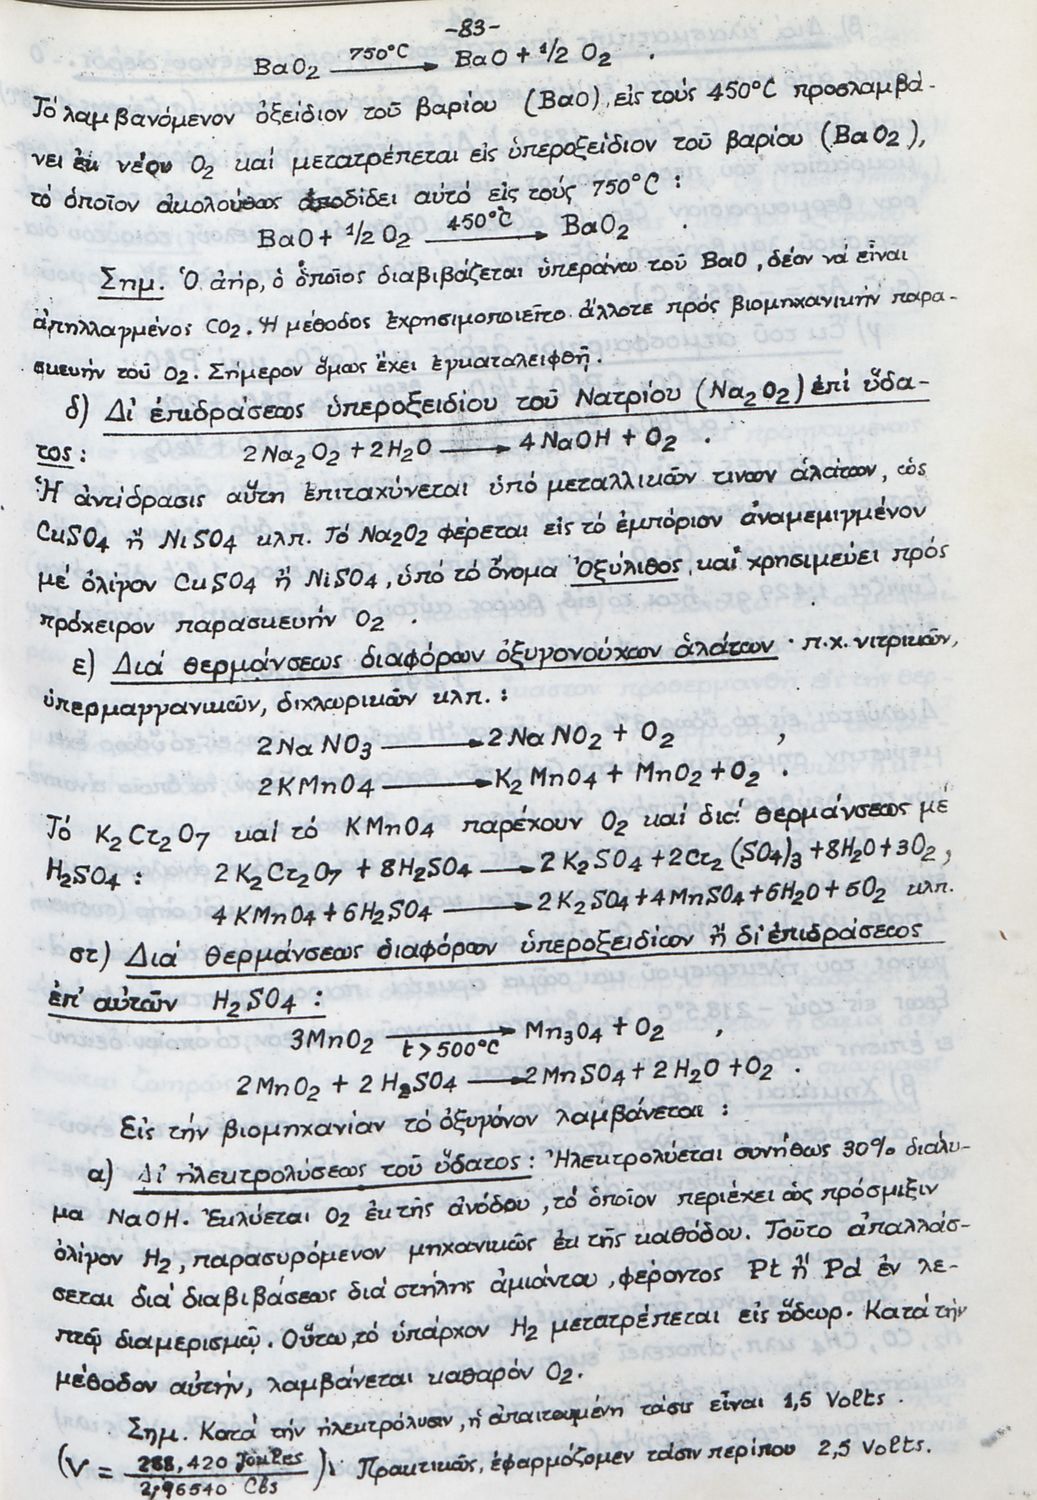 -83-
BaO2 —750°C→ BaO + 1/2 O2 .
Τό λαμβανόμενον ὀξείδιον τοῦ βαρίου (BaO), εἰς τούς 450°C προσλαμβά-
νει ἐκ νέου O2 καί μετατρέπεται εἰς ὑπεροξείδιον τοῦ βαρίου (BaO2),
τό ὁποῖον ἀκολούθως ἀποδίδει αὐτό εἰς τούς 750°C :
BaO + 1/2 O2 —450°C→ BaO2 .
Σημ. Ὁ ἀήρ, ὁ ὁποῖος διαβιβάζεται ὑπεράνω τοῦ BaO, δέον νά εἶναι
ἀπηλλαγμένος CO2. Ἡ μέθοδος ἐχρησιμοποιεῖτο ἄλλοτε πρός βιομηχανικήν παρα-
σκευήν τοῦ O2. Σήμερον ὅμως ἔχει ἐγκαταλειφθῆ.
δ) Δι' ἐπιδράσεως ὑπεροξειδίου τοῦ Νατρίου (Na2O2) ἐπί ὕδα-
τος: 2Na2O2 + 2H2O → 4NaOH + O2 .
Ἡ ἀντίδρασις αὕτη ἐπιταχύνεται ὑπό μεταλλικῶν τινων ἁλάτων, ὡς
CuSO4 ἤ NiSO4 κλπ. Τό Na2O2 φέρεται εἰς τό ἐμπόριον ἀναμεμιγμένον
μέ ὀλίγον CuSO4 ἤ NiSO4, ὑπό τό ὄνομα Ὀξύλιθος, καί χρησιμεύει πρός
πρόχειρον παρασκευήν O2 .
ε) Διά θερμάνσεως διαφόρων ὀξυγονούχων ἁλάτων · π.χ. νιτρικῶν,
ὑπερμαγγανικῶν, διχλωρικῶν κλπ. :
2NaNO3 → 2NaNO2 + O2 ,
2KMnO4 → K2MnO4 + MnO2 + O2 .
Τό K2Cr2O7 καί τό KMnO4 παρέχουν O2 καί διά θερμάνσεως μέ
H2SO4 : 2K2Cr2O7 + 8H2SO4 → 2K2SO4 + 2Cr2(SO4)3 + 8H2O + 3O2 ,
4KMnO4 + 6H2SO4 → 2K2SO4 + 4MnSO4 + 6H2O + 5O2 κλπ.
στ) Διά θερμάνσεως διαφόρων ὑπεροξειδίων ἤ δι' ἐπιδράσεως
ἐπ' αὐτῶν H2SO4 :
3MnO2 —t > 500°C→ Mn3O4 + O2 ,
2MnO2 + 2H2SO4 → 2MnSO4 + 2H2O + O2 .
Εἰς τήν βιομηχανίαν τό ὀξυγόνον λαμβάνεται :
α) Δι' ἠλεκτρολύσεως τοῦ ὕδατος: Ἠλεκτρολύεται συνήθως 30% διάλυ-
μα NaOH. Ἐκλύεται O2 ἐκ τῆς ἀνόδου, τό ὁποῖον περιέχει ὡς πρόσμιξιν
ὀλίγον H2, παρασυρόμενον μηχανικῶς ἐκ τῆς καθόδου. Τοῦτο ἀπαλλάσ-
σεται διά διαβιβάσεως διά στήλης ἀμιάντου, φέροντος Pt ἤ Pd ἐν λε-
πτῷ διαμερισμῷ. Οὕτω, τό ὑπάρχον H2 μετατρέπεται εἰς ὕδωρ. Κατά τήν
μέθοδον αὐτήν, λαμβάνεται καθαρόν O2.
Σημ. Κατά τήν ἠλεκτρόλυσιν, ἡ ἀπαιτουμένη τάσις εἶναι 1,5 Volts .
(V = 288,420 Joules / 2,96540 Cbs). Πρακτικῶς, ἐφαρμόζομεν τάσιν περίπου 2,5 Volts.